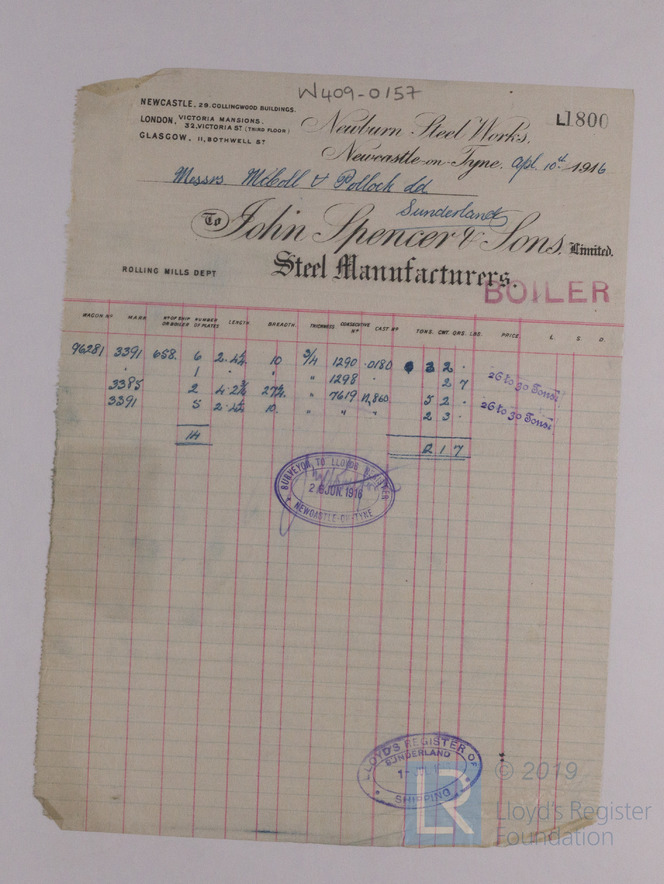 W409-0157
NEWCASTLE, 29, COLLINGWOOD BUILDINGS.
LONDON, VICTORIA MANSIONS,
32, VICTORIA ST (THIRD FLOOR)
GLASGOW, 11, BOTHWELL ST
L1800
Newburn Steel Works,
Newcastle-on-Tyne, Apl. 10th 1916
Messrs McColl & Pollock Ld
Sunderland
To John Spencer & Sons, Limited.
ROLLING MILLS DEPT
Steel Manufacturers.
BOILER
WAGON No MARK No OF SHIP OR BOILER NUMBER OF PLATES LENGTH BREADTH THICKNESS CONSECUTIVE No CAST No TONS. CWT. QRS. LBS. PRICE £ S. D.
96281 3391 658. 6 10 3/4 1290 0180 3 2 -
" 1 " " " 1298 - 2 7 26 to 30 Tons
3385 2 " 7619 11,860 5 2 -
3391 5 10 " " " 2 3 - 26 to 30 Tons
14 2 1 7
SURVEYOR TO LLOYDS REGISTER
2 JUN. 1916
NEWCASTLE-ON-TYNE
LLOYD'S REGISTER OF
SUNDERLAND
SHIPPING
LR
© 2019
Lloyd's Register
Foundation